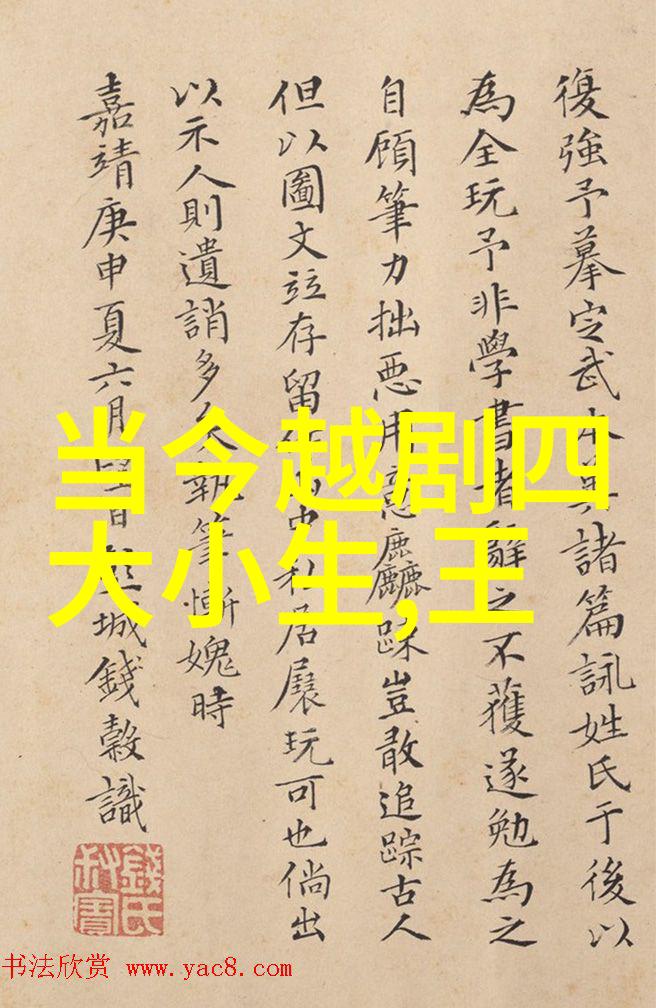 復強予摹定武本與諸篇詠姓氏于後以
為全玩予非學書者辭之不獲遂勉為之
自顧筆力拙惡用意麤䟽豈敢追踪古人
但以圖文竝存留私居展玩可也倘出
以示人則遺誚多矣執筆慚媿時
嘉靖庚申夏六月城錢穀識
当今越剧四
大小生,王
錢氏
书法欣赏 www.yac8.com